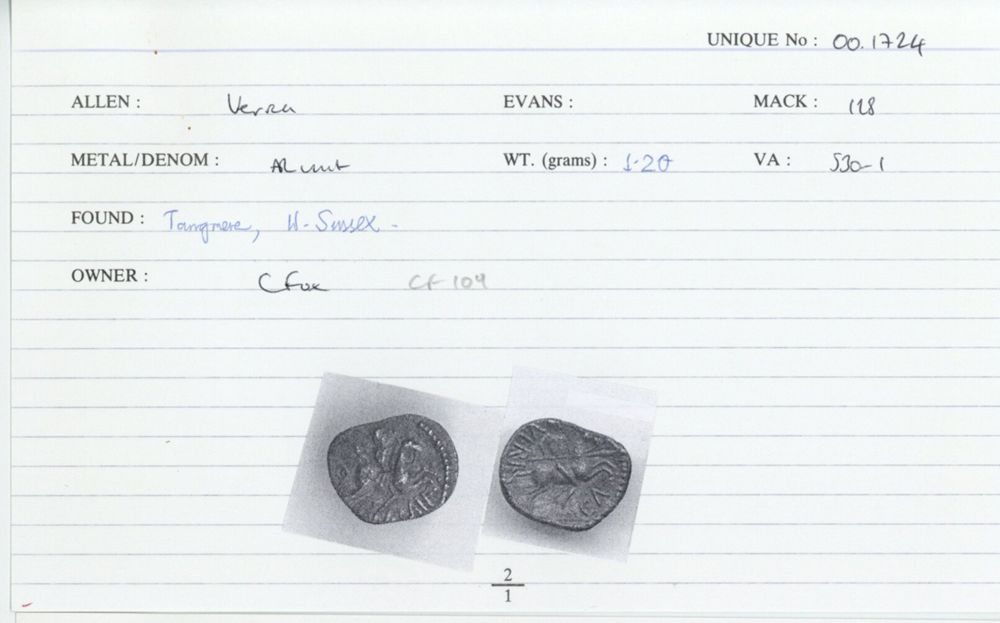 UNIQUE No : 00.1724
ALLEN : Verica EVANS : MACK : 128
METAL/DENOM : AR unit WT. (grams) : 1.20 VA : 530-1
FOUND : Tangmere, W. Sussex -
OWNER : C Fox CF 104
2
1